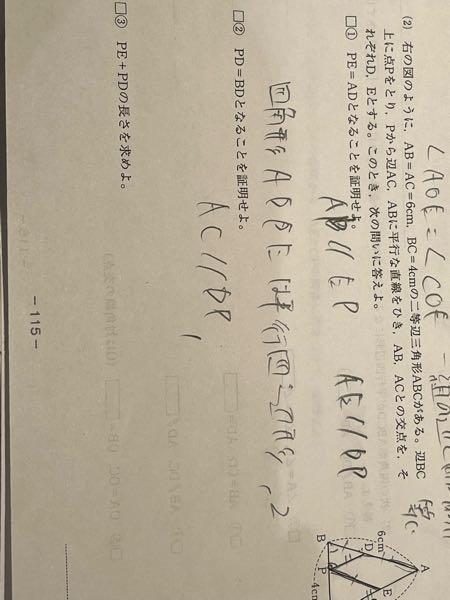 ∠AOE=∠COE
(2) 右の図のように，AB＝AC＝6cm，BC＝4cmの二等辺三角形ABCがある。辺BC
上に点Pをとり，Pから辺AC，ABに平行な直線をひき，AB，ACとの交点を，そ
れぞれD，Eとする。このとき，次の問いに答えよ。
□① PE＝ADとなることを証明せよ。
AB//EP AE//DP
四角形ADPEは平行四辺形
□② PD＝BDとなることを証明せよ。
AC//DP,
□③ PE＋PDの長さを求めよ。
A
6cm
D
E
B
P
4cm
－115－